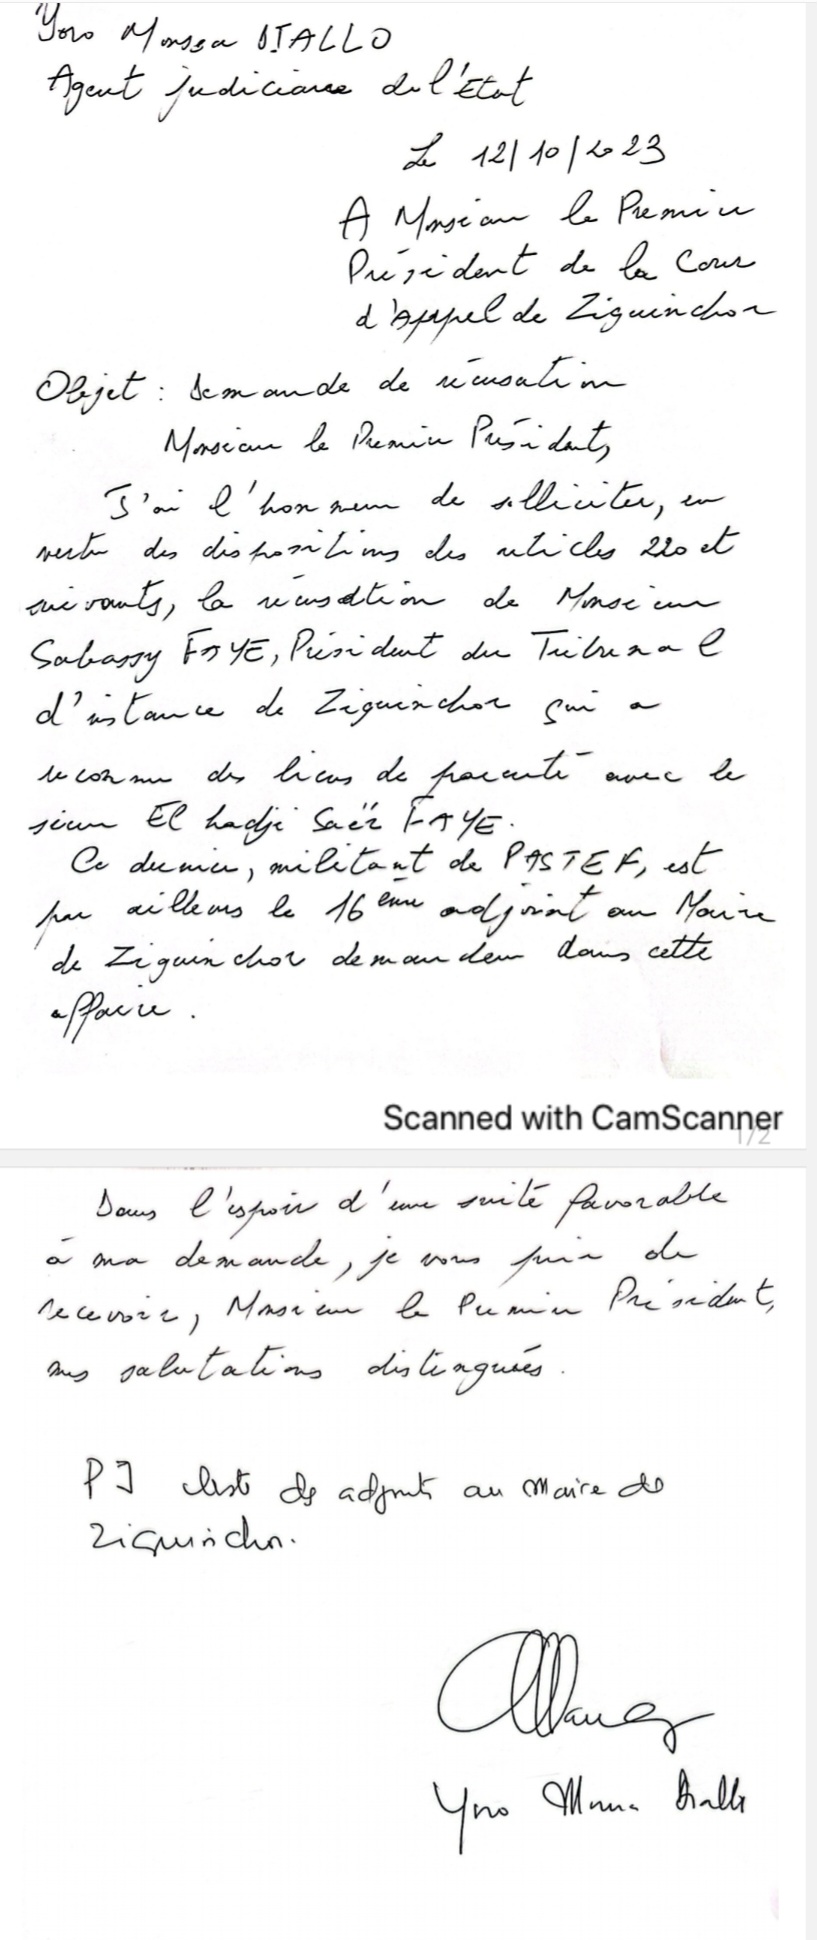 Yoro Moussa DIALLO
Agent judiciaire de l'Etat
Le 12/10/2023
A Monsieur le Premier
Président de la Cour
d'Appel de Ziguinchor
Objet : Demande de récusation
Monsieur le Premier Président,
J'ai l'honneur de solliciter, en
vertu des dispositions des articles 220 et
suivants, la récusation de Monsieur
Sabassy FAYE, Président du Tribunal
d'instance de Ziguinchor qui a
reconnu des liens de parenté avec le
sieur El hadji Saër FAYE.
Ce dernier, militant de PASTEF, est
par ailleurs le 16 ème adjoint au Maire
de Ziguinchor demandeur dans cette
affaire.
Scanned with CamScanner
1/2
Dans l'espoir d'une suite favorable
à ma demande, je vous prie de
recevoir, Monsieur le Premier Président,
mes salutations distinguées.
PJ liste des adjoints au Maire de
Ziguinchor.
Yoro Moussa Diallo